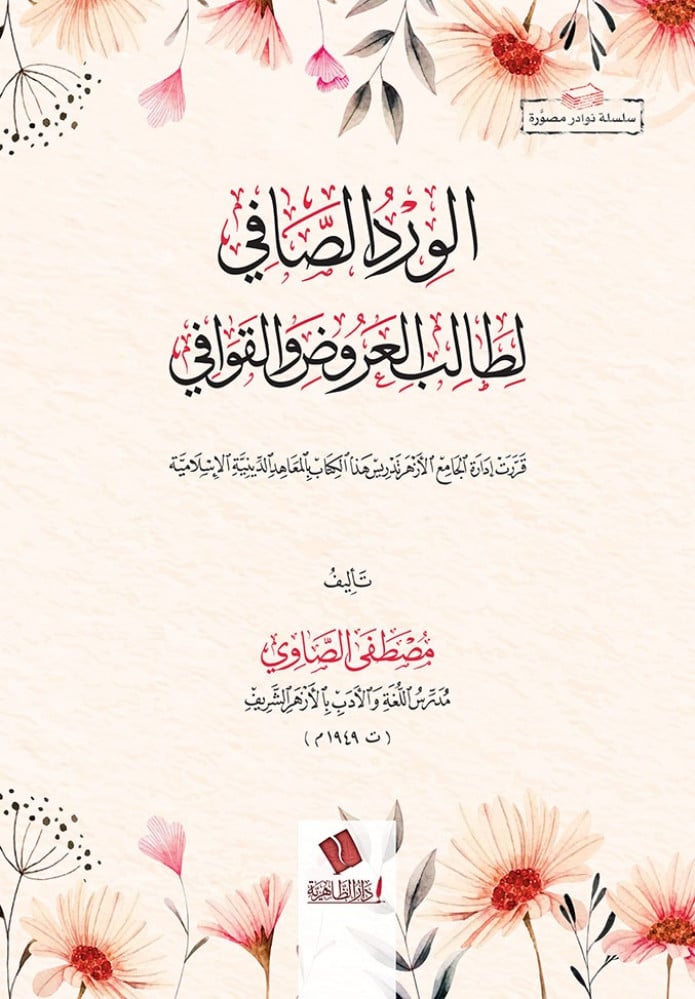 سلسلة نوادر مصوَّرة
الوِرْدُ الصَّافِي
لِطَالِبِ العَرُوضِ وَالقَوَافِي
قَرَّرَتْ إِدَارَةُ الجَامِعِ الأَزْهَرِ تَدْرِيسَ هَذَا الكِتَابِ بِالمَعَاهِدِ الدِّينِيَّةِ الإِسْلَامِيَّة
تَأليفُ
مُصْطَفَى الصَّاوِي
مُدَرِّسُ اللُّغَةِ وَالأَدَبِ بِالأَزْهَرِ الشَّرِيفِ
( ت ١٩٤٩م )
دَارُ الظَّاهِرِيَّة